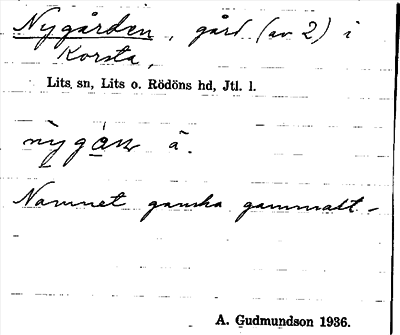 Nygården, gård (av 2) i
Korsta,
Lits sn, Lits o. Rödöns hd, Jtl. l.
Namnet ganska gammalt -
A. Gudmundson 1936.